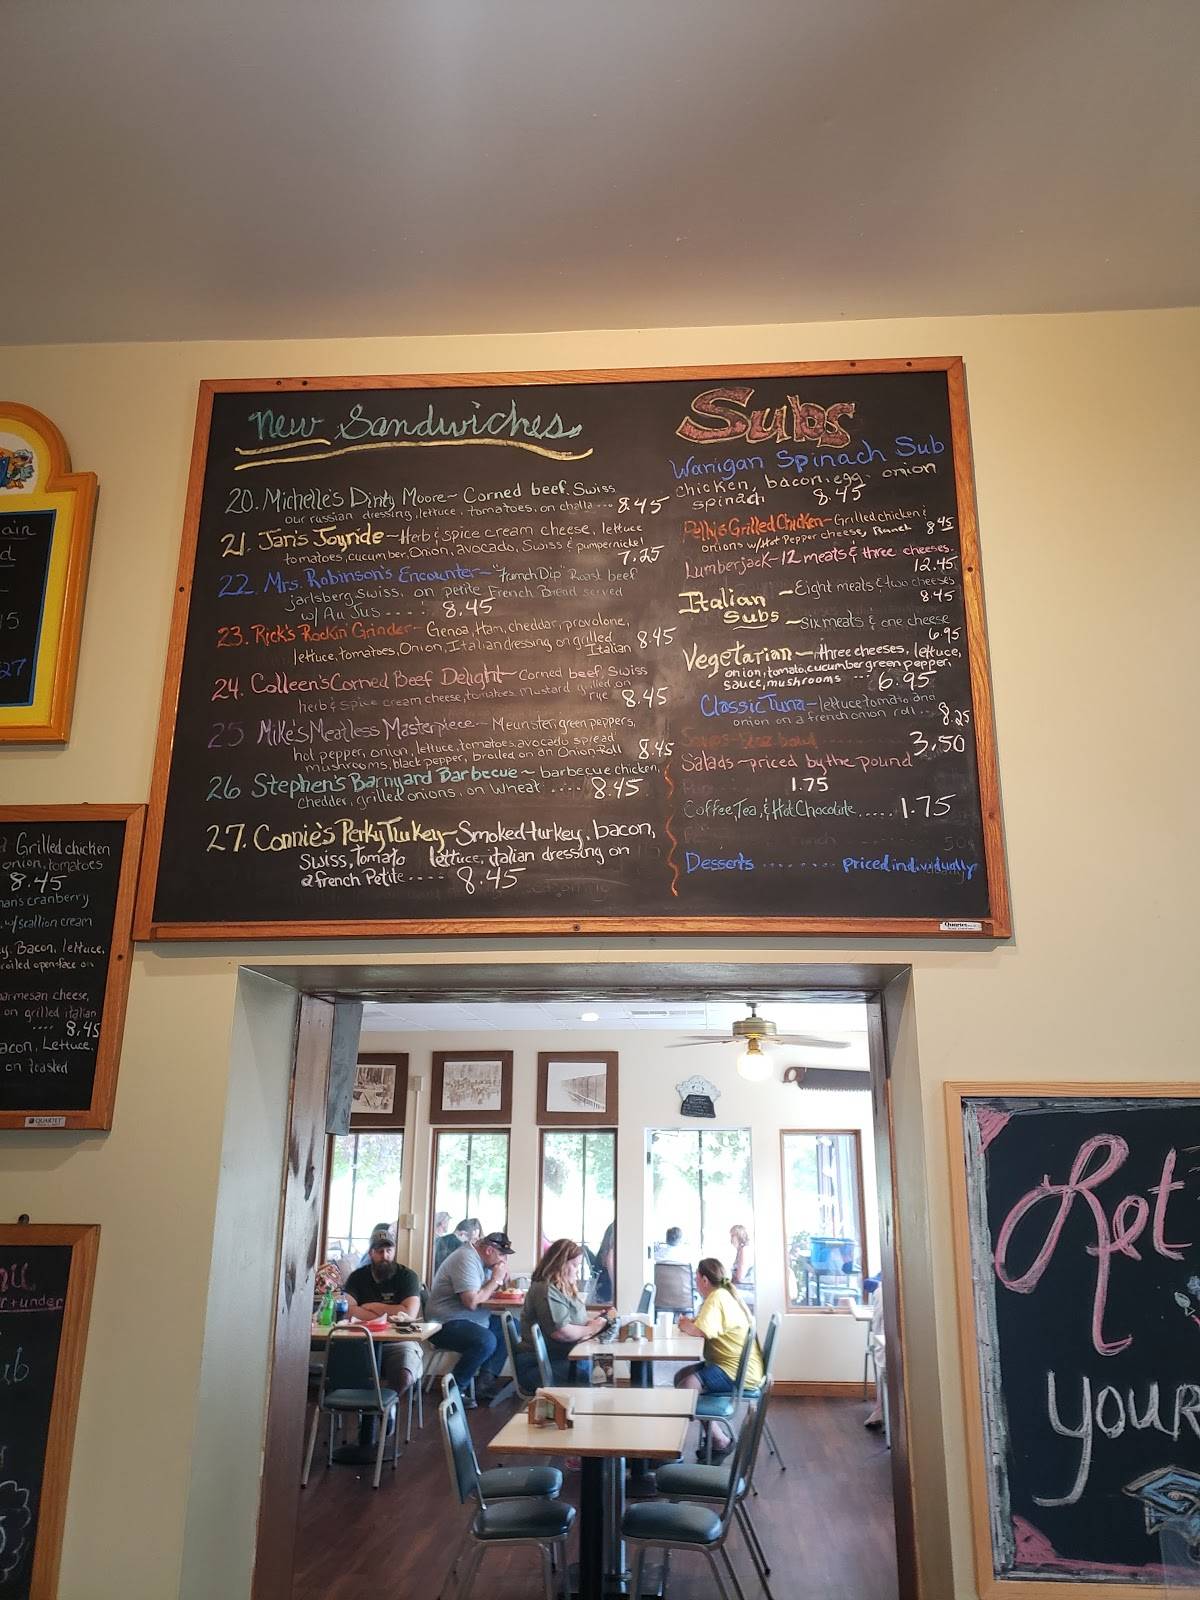 New Sandwiches
20. Michelle's Dinty Moore~ Corned beef, Swiss
our russian dressing, lettuce, tomatoes, on challa ... 8.45
21. Jan's Joyride~Herb & spice cream cheese, lettuce
tomatoes, cucumber, Onion, avocado, Swiss & pumpernickel
7.25
22. Mrs. Robinson's Encounter~ "French Dip" Roast beef
jarlsberg swiss, on petite French Bread served
w/ Au Jus .... 8.45
23. Rick's Rockin' Grinder~ Genoa, Ham, cheddar, provolone,
lettuce, tomatoes, Onion, Italian dressing on grilled
Italian 8.45
24. Colleen's Corned Beef Delight~ Corned beef, Swiss
herb & spice cream cheese, tomatoes, mustard grilled on
rye 8.45
25 Mike's Meatless Masterpiece~ Meunster, green peppers,
hot pepper, onion, lettuce, tomatoes, avocado spread
mushrooms, black pepper, broiled on an Onion Roll 8.45
26 Stephen's Barnyard Barbecue~ barbecue chicken,
chedder, grilled onions, on wheat .... 8.45
27. Connie's Perky Turkey~Smoked turkey, bacon,
Swiss, tomato lettuce, italian dressing on
a french Petite .... 8.45
Subs
Wanigan Spinach Sub
chicken, bacon, egg, onion
spinach 8.45
Pelky's Grilled Chicken~Grilled chicken &
onions w/Hot Pepper cheese, Ranch 8.45
Lumberjack~12 meats & three cheeses.
12.45
Italian ~Eight meats & two cheeses
8.45
Subs ~Six meats & one cheese
6.95
Vegetarian~three cheeses, lettuce,
onion, tomato, cucumber green pepper,
sauce, mushrooms ... 6.95
Classic Tuna~lettuce tomato and
onion on a french onion roll ... 8.25
Soups~ bowl 3.50
Salads~priced by the pound
1.75
Coffee, Tea, & Hot Chocolate..... 1.75
50¢
Desserts ........ priced individually
Quartet
ain
27
Grilled chicken
onion, tomatoes
8.45
cranberry
w/scallion cream
Bacon, lettuce,
broiled open-face on
parmesan cheese,
on grilled italian
.... 8.45
acon, Lettuce,
on toasted
QUARTET
under
Let
your